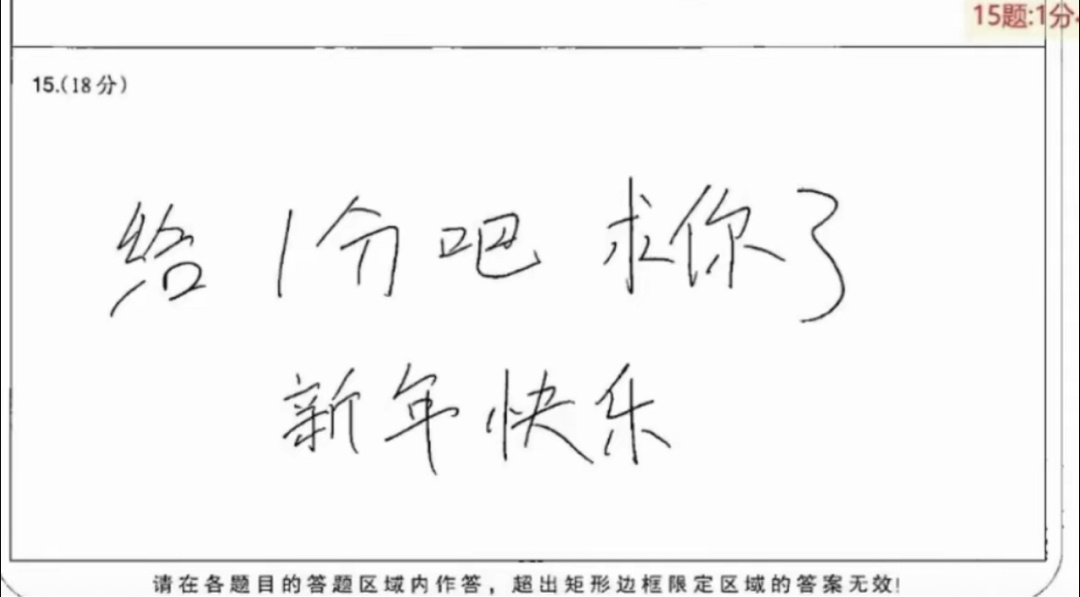 15题:1分
15.(18分)
给1分吧 求你了
新年快乐
请在各题目的答题区域内作答，超出矩形边框限定区域的答案无效!